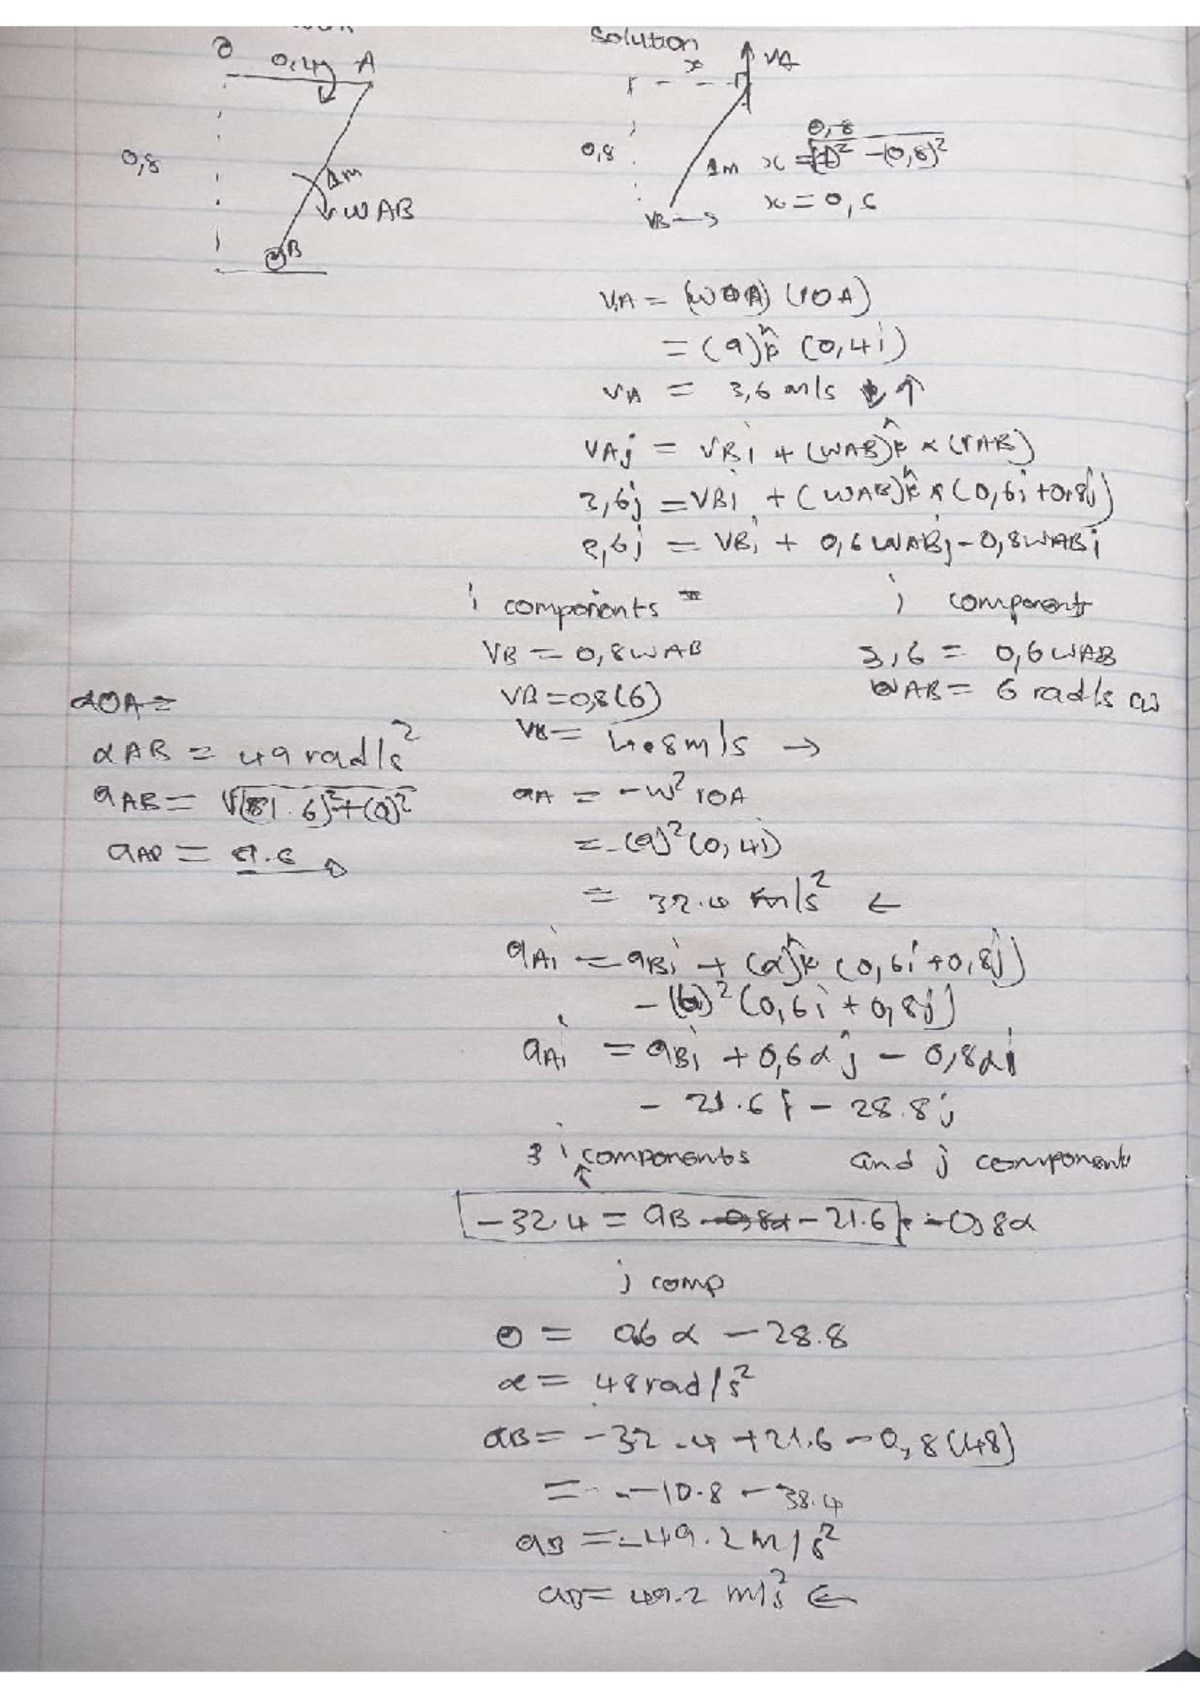 O 0.4 A
0,8
1m
WAB
B
Solution
x VA
0,8
1m x = √(1)² - (0,8)²
0,8
VB → x = 0,6
VA = (WOA) (rOA)
= (9)k̂ (0,4i)
VA = 3,6 m/s ↑
VAj = VBi + (WAB)k̂ x (rAB)
3,6j = VBi + (WAB)k̂ x (0,6i + 0.8j)
3,6j = VBi + 0,6WABj - 0,8WABi
i components = j components
VB = 0,8WAB 3,6 = 0,6WAB
VB = 0,8(6) WAB = 6 rad/s
VB = 4.8m/s →
αOA =
αAB = 49 rad/s²
aAB = √(81.6)² + (0)²
aAB =
aA = -w² rOA
= -(9)² (0,4i)
= 32.4 m/s² ←
aAi = aBi + (α)k̂ (0,6i + 0,8j)
- (6)² (0,6i + 0,8j)
aAi = aBi + 0,6αj - 0,8αi
- 21.6i - 28.8j
i components and j components
-32.4 = aB - 0,8α - 21.6 - 0,8α
j comp
0 = 0.6α - 28.8
α = 48 rad/s²
aB = -32.4 + 21.6 - 0,8(48)
= -10.8 - 38.4
aB = -49.2 m/s²
aB = 49.2 m/s² ←